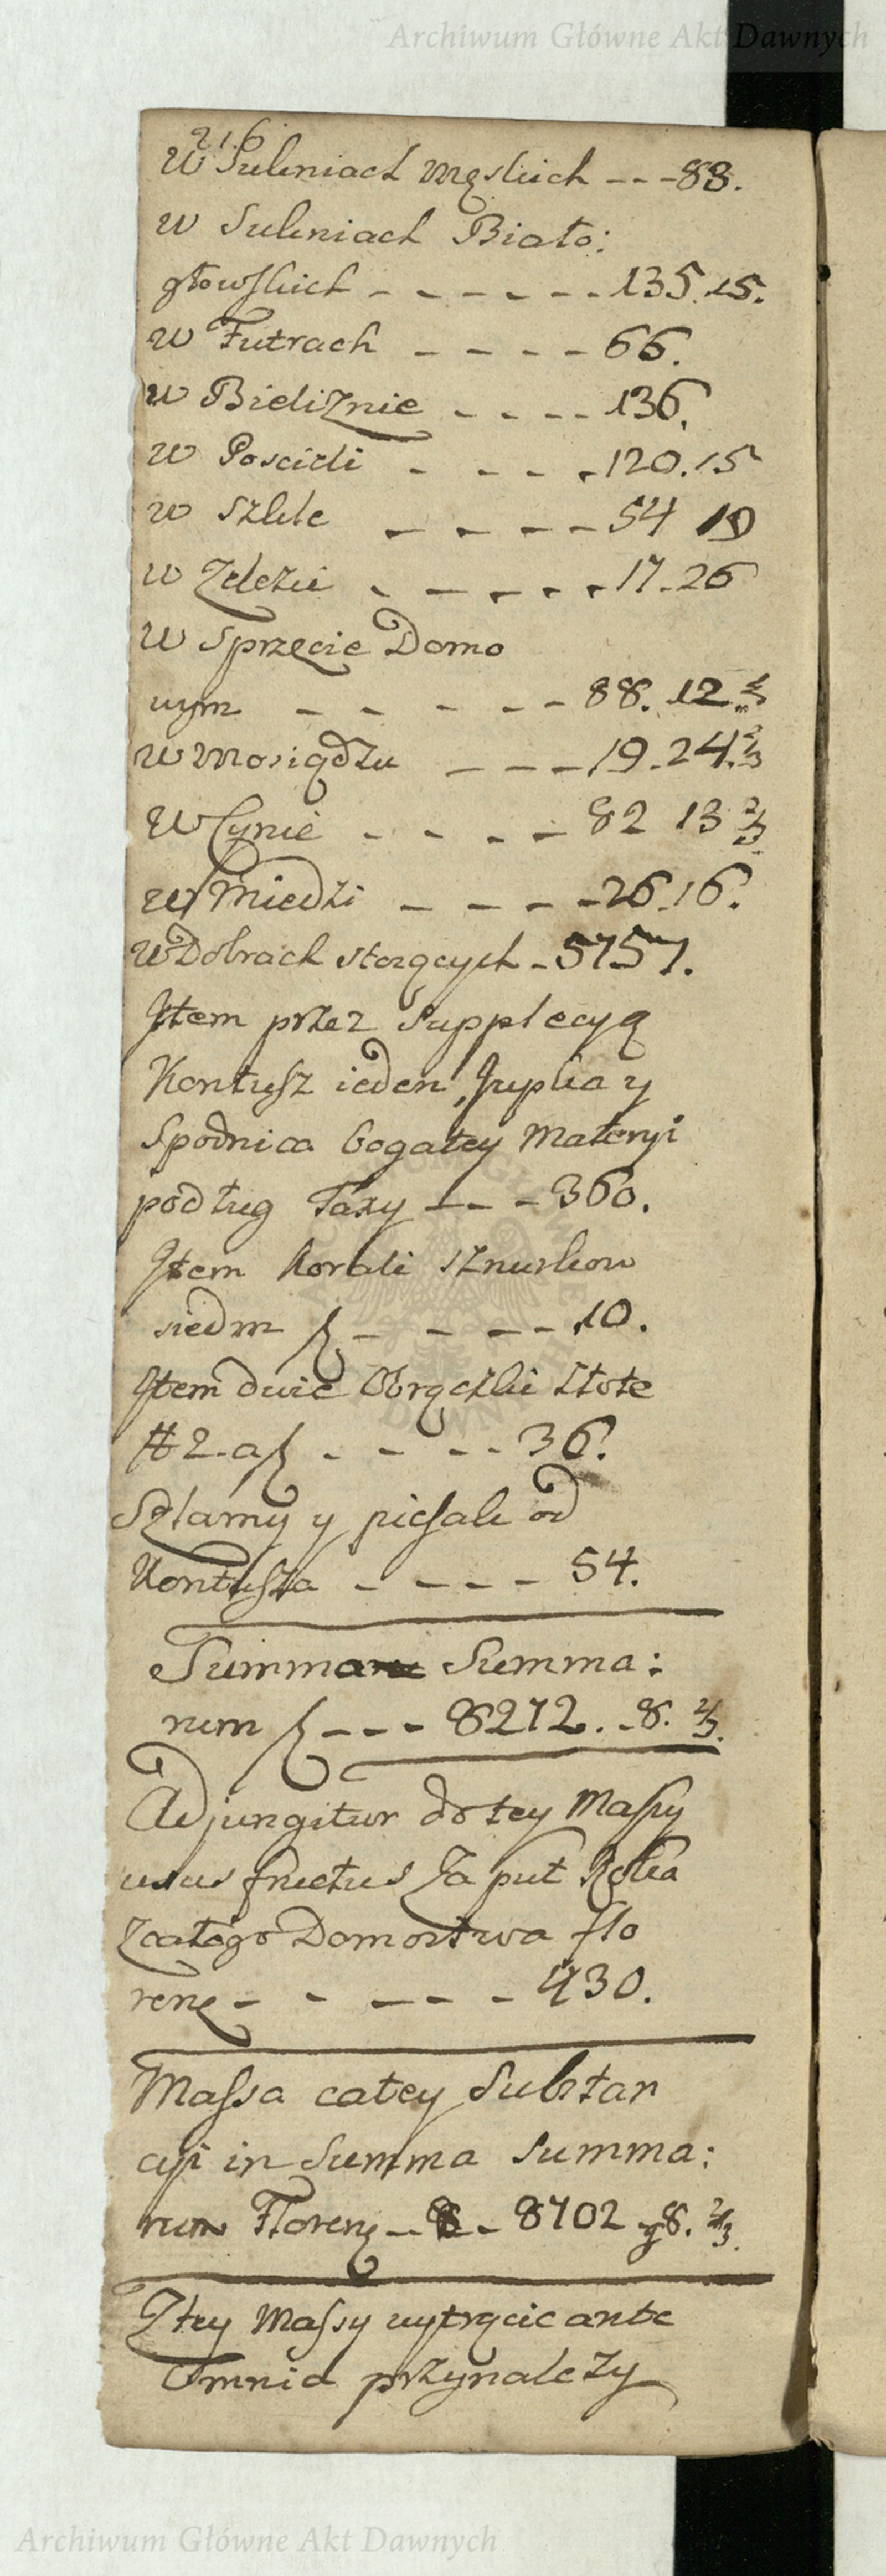 Archiwum Główne Akt Dawnych
216
W Sukniach Męskich - - - 88.
w Sukniach Biało:
głowskich - - - - - - 135. 15.
w Futrach - - - - 66.
w Bieliznie - - - - 136.
w Poscieli - - - - 120. 15
w Szkle - - - - 54 19
w Zelezie - - - - - 17. 26
w Sprzęcie Domo
wym - - - - - 88. 12.
w Mosiądzu - - - 19. 24. 2/3
w Cynie - - - - 82 13 2/3
w Miedzi - - - - 26. 16.
w Dobrach stoiących - 5757.
Item przez Supplecyą
Kontusz ieden, Jupka y
Spodnica bogatey Materyi
podług Taxy - - - 360.
Item Korali sznurkow
siedm f - - - - 10.
Item dwie Obrączki złote
# 2. a f - - - - 36.
Sztamy y od
Kontusza - - - - 54.
Summa Summa:
rum f - - - 8272. . 8. 2/3.
Adjungitur do tey Massy
usus fructus Za puł Roka
z całego Domostwa flo
renę - - - - - 430.
Massa całey Substan
cyi in Summa Summa:
rum Florenę - - 8702 g 8. 2/3.
Z tey Massy wytrącic ante
Omnia przynalezy
Archiwum Główne Akt Dawnych